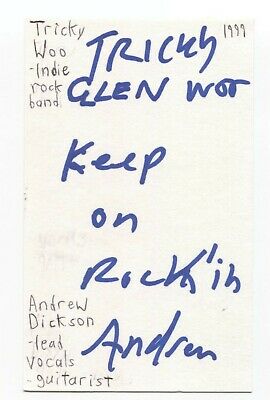 Tricky
Woo
-Indie
rock
band
1999
TRICKY
GLEN WOO
Keep
on
Rock'in
Andrew
Andrew
Dickson
-lead
vocals
-guitarist